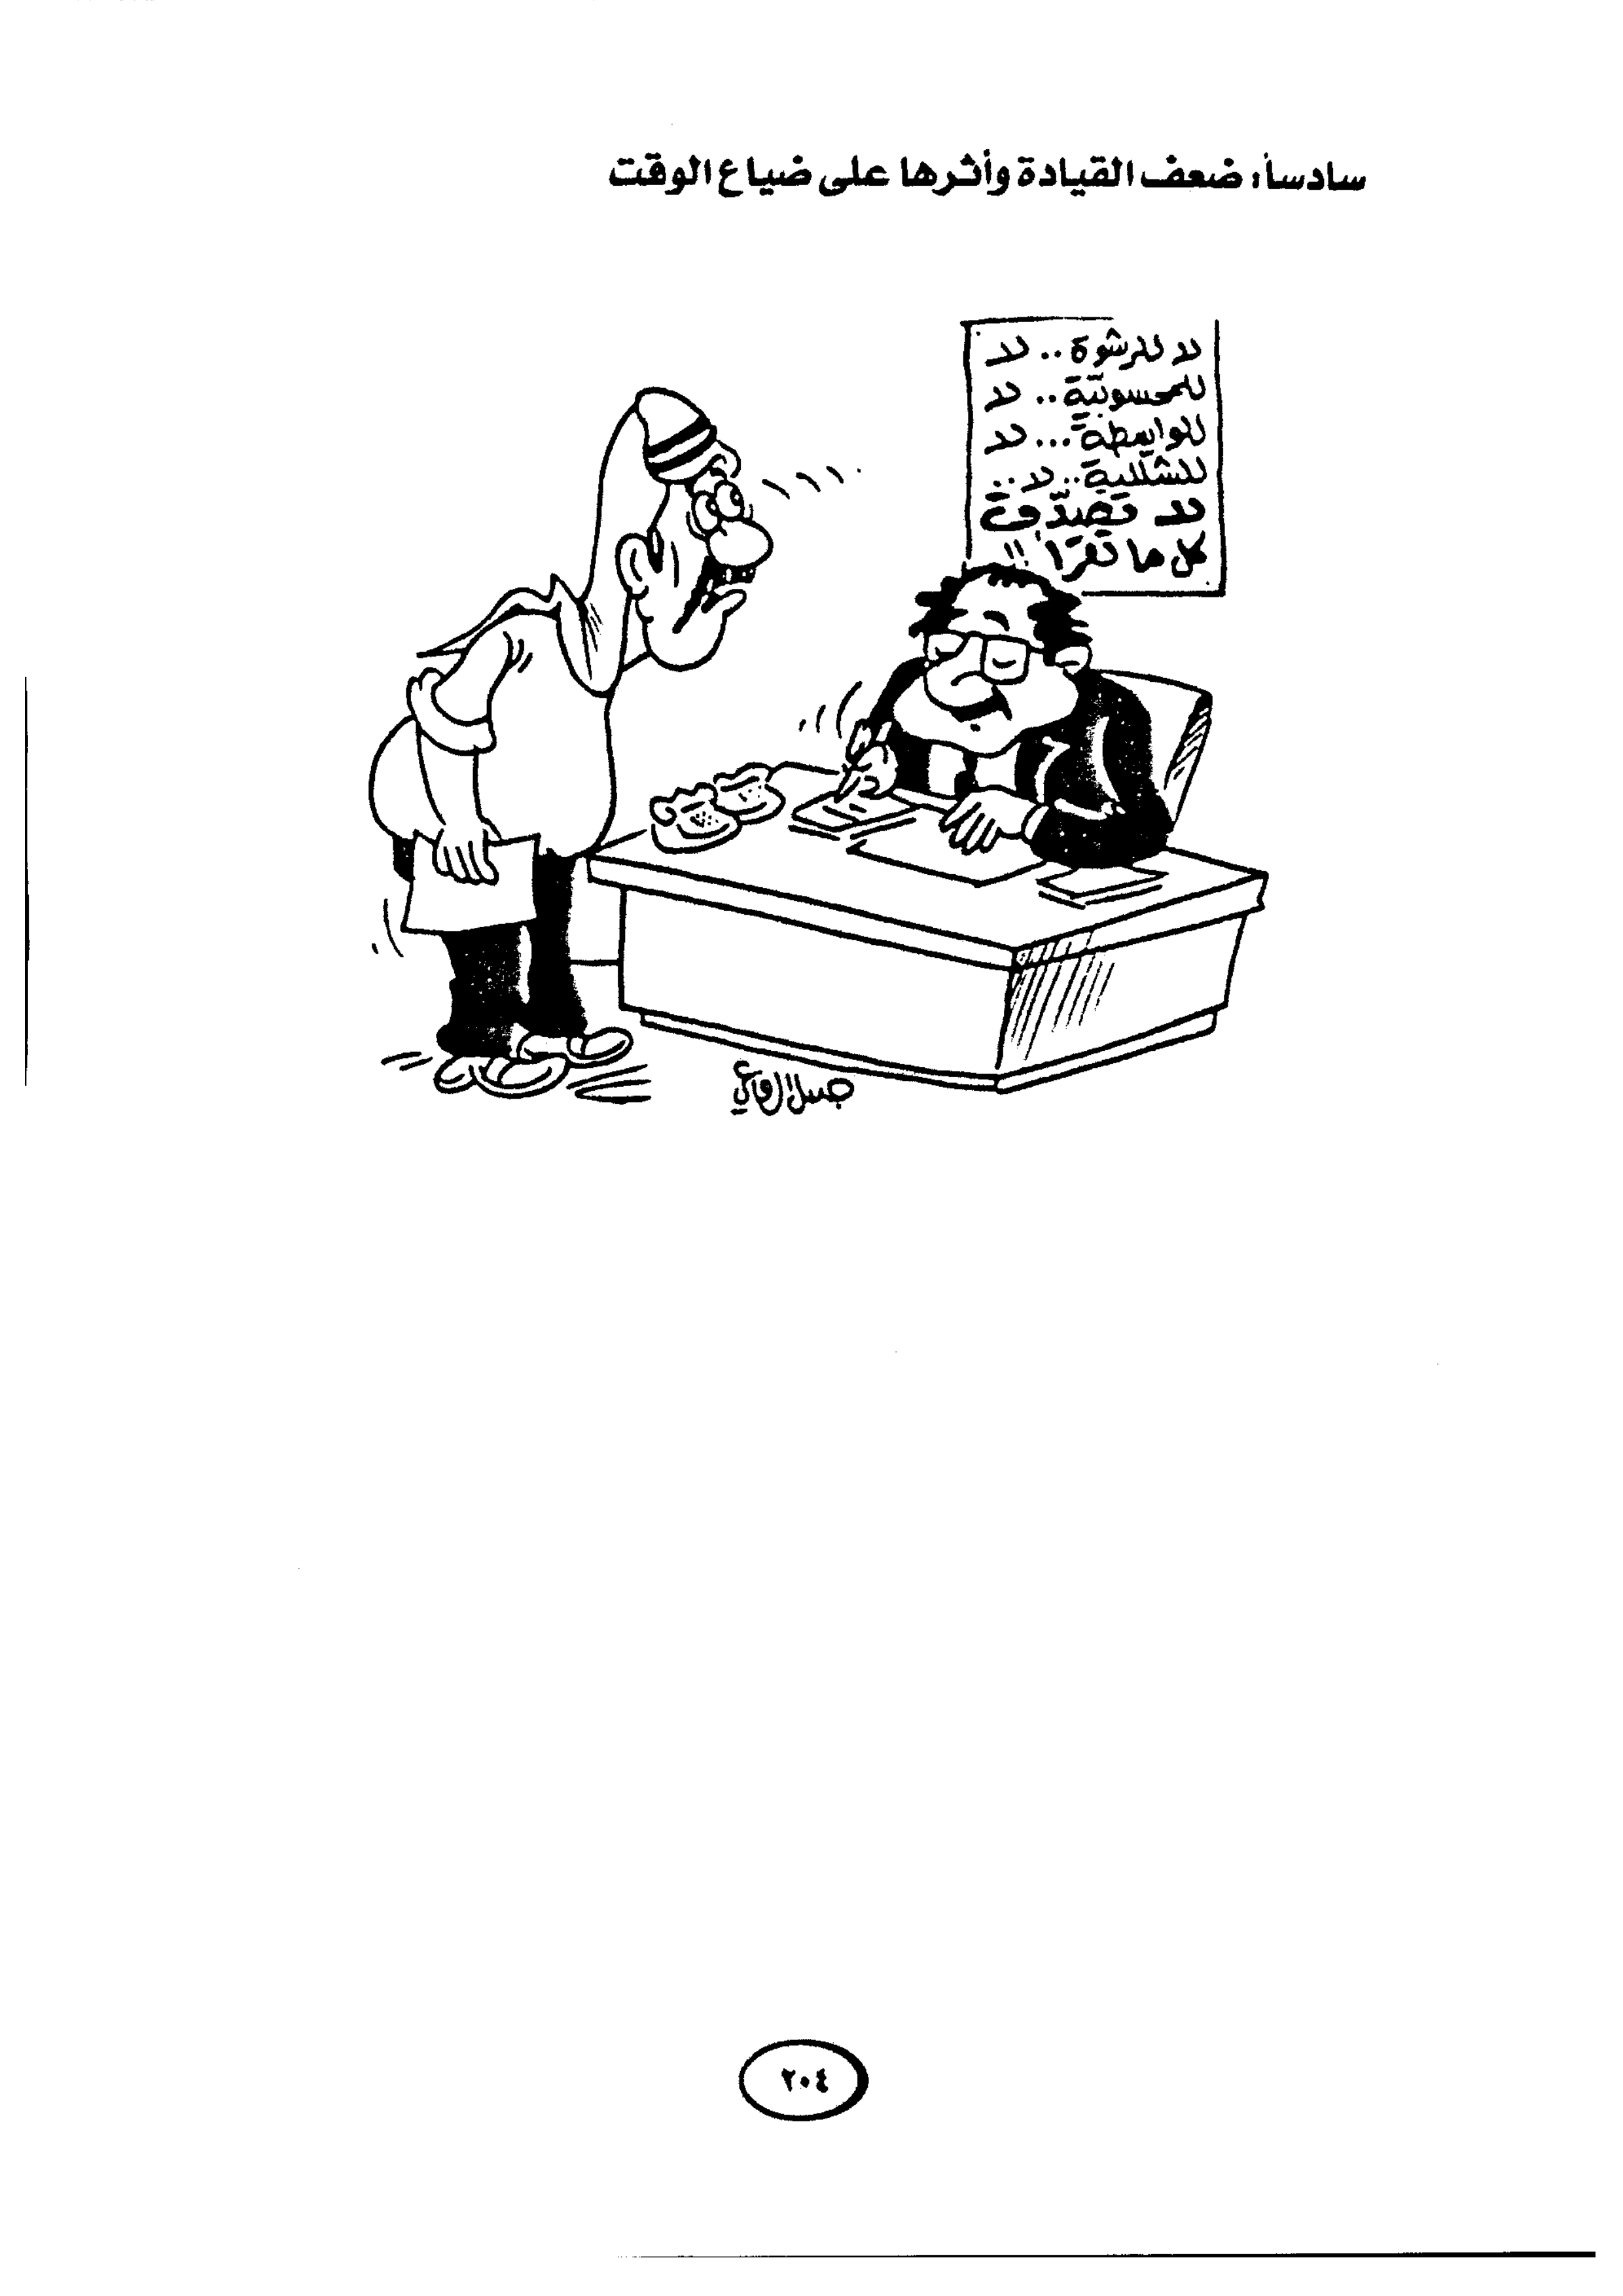 سادساً: ضعف القيادة وأثرها على ضياع الوقت
لا للرشوة .. لا
للمحسوبيّة .. لا
للواسطة ... لا
للشللية .. لا ..
لا تصدّق
كل ما تقرأ !!
٢٠٤